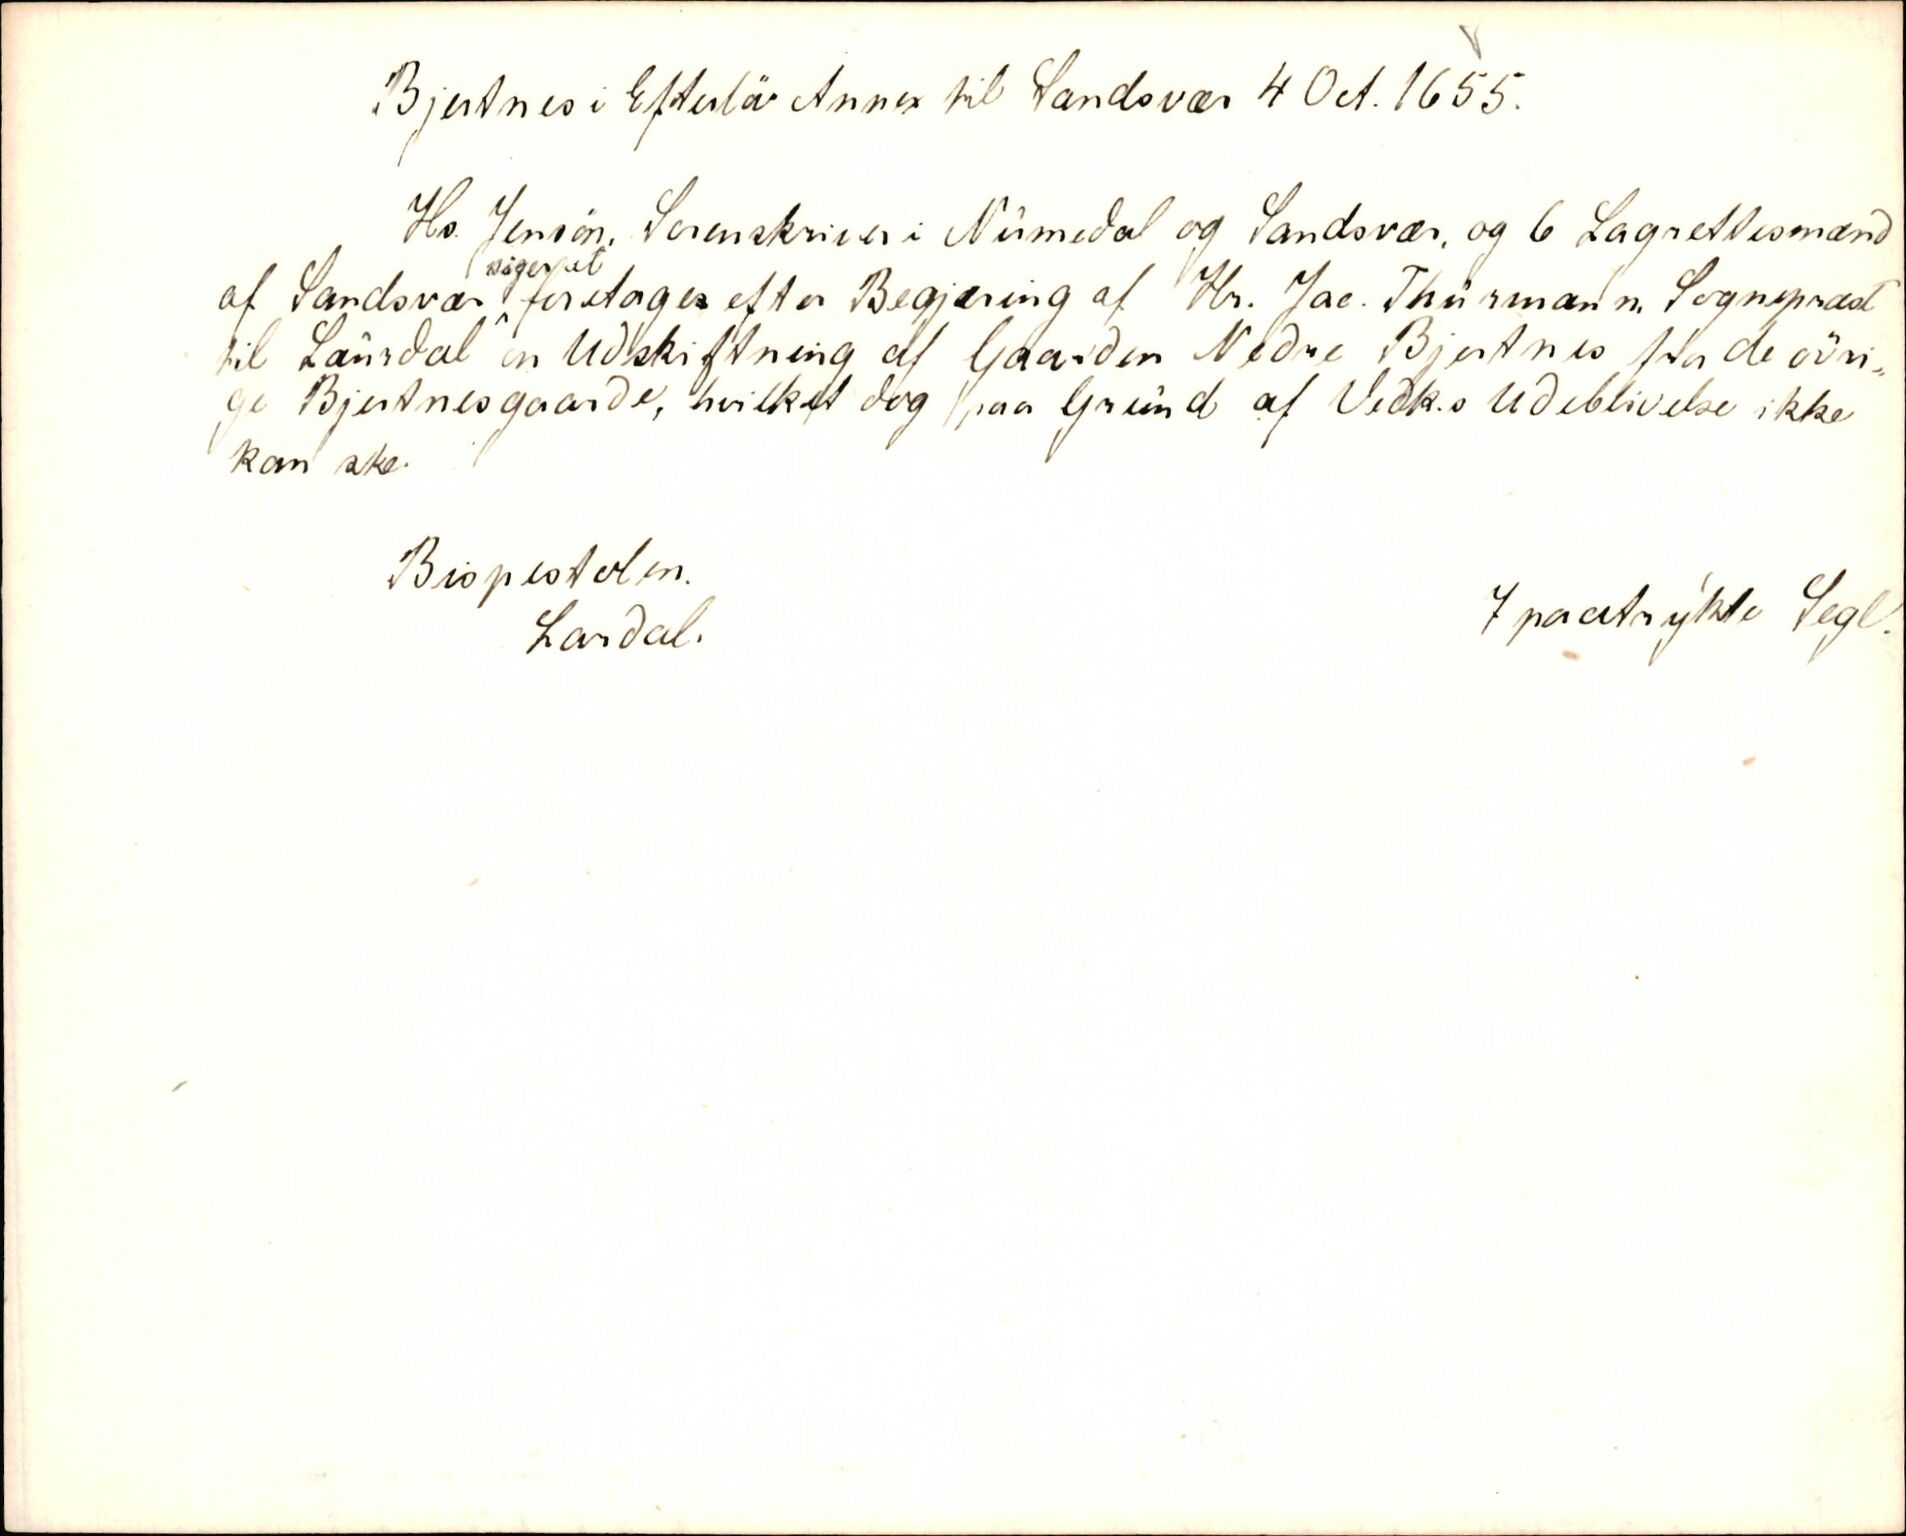 Bjertnes i Efterlöv Annex til Sandsvær 4 Oct. 1655.
Hs. Jensön, Sorenskriver i Nûmedal og Sandsvær, og 6 Lagrettesmænd
siger at
af Sandsvær foretages efter Begjæring af Hr. Jac. Thûrmann, Sognepræst
til Laûrdal en Udskiftning af Gaarden Nedre Bjertnes fra de övri-
ge Bjertnesgaarde, hvilket dog paa Grûnd af Vedk.s Udeblivelse ikke
kan ske.
Bispestolen.
Lardal.
7 paatrykte Segl.